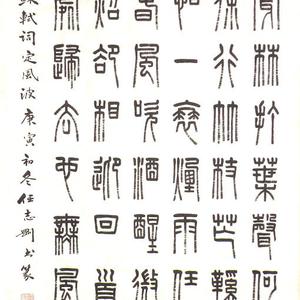 穿林打葉聲何
徐行竹杖芒鞋
怕一蓑煙雨任
春風吹酒醒微
照卻相迎回首
處歸去也無風
蘇軾詞定風波庚寅初冬任志剛書篆